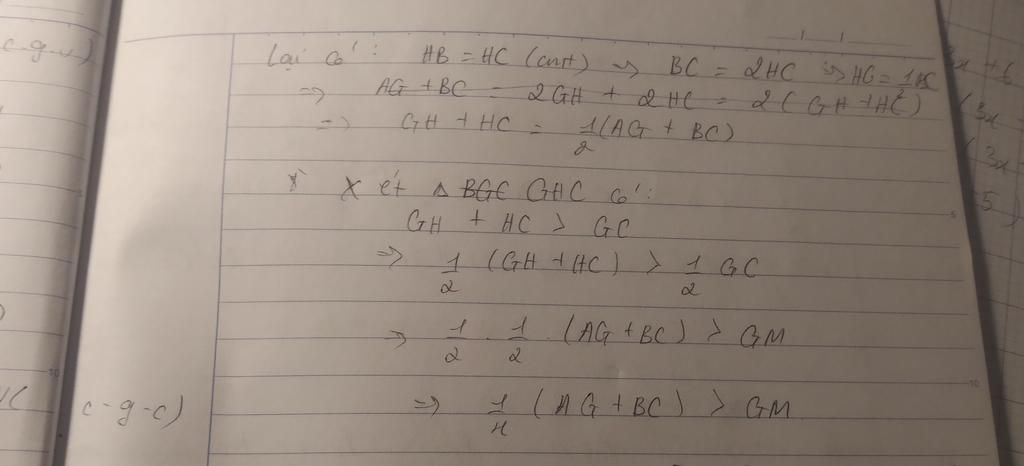 c-g-c)
Lại có: HB = HC (cmt) => BC = 2HC => HC = 1/2 BC
=> AG + BC = 2GH + 2HC = 2(GH + HC)
=> GH + HC = 1/2 (AG + BC)
* Xét Δ BGC GHC có:
GH + HC > GC
=> 1/2 (GH + HC) > 1/2 GC
=> 1/2 . 1/2 . (AG + BC) > GM
=> 1/4 (AG + BC) > GM
c-g-c)
3x + 6
(3x -
(3x
5)
5
10
10